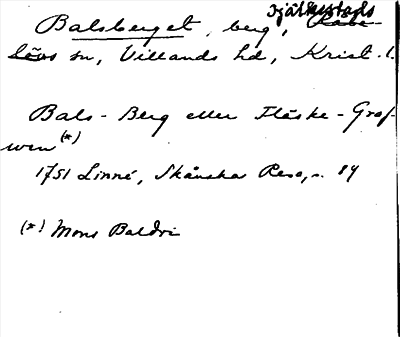 Balsberget, berg, Fjälkestads
sn, Villands hd, Krist. l.
Bals-Berg eller Fläske-Graf-
wen (*)
1751 Linné, Skånska Resa, s. 84
(*) Mons Baldri